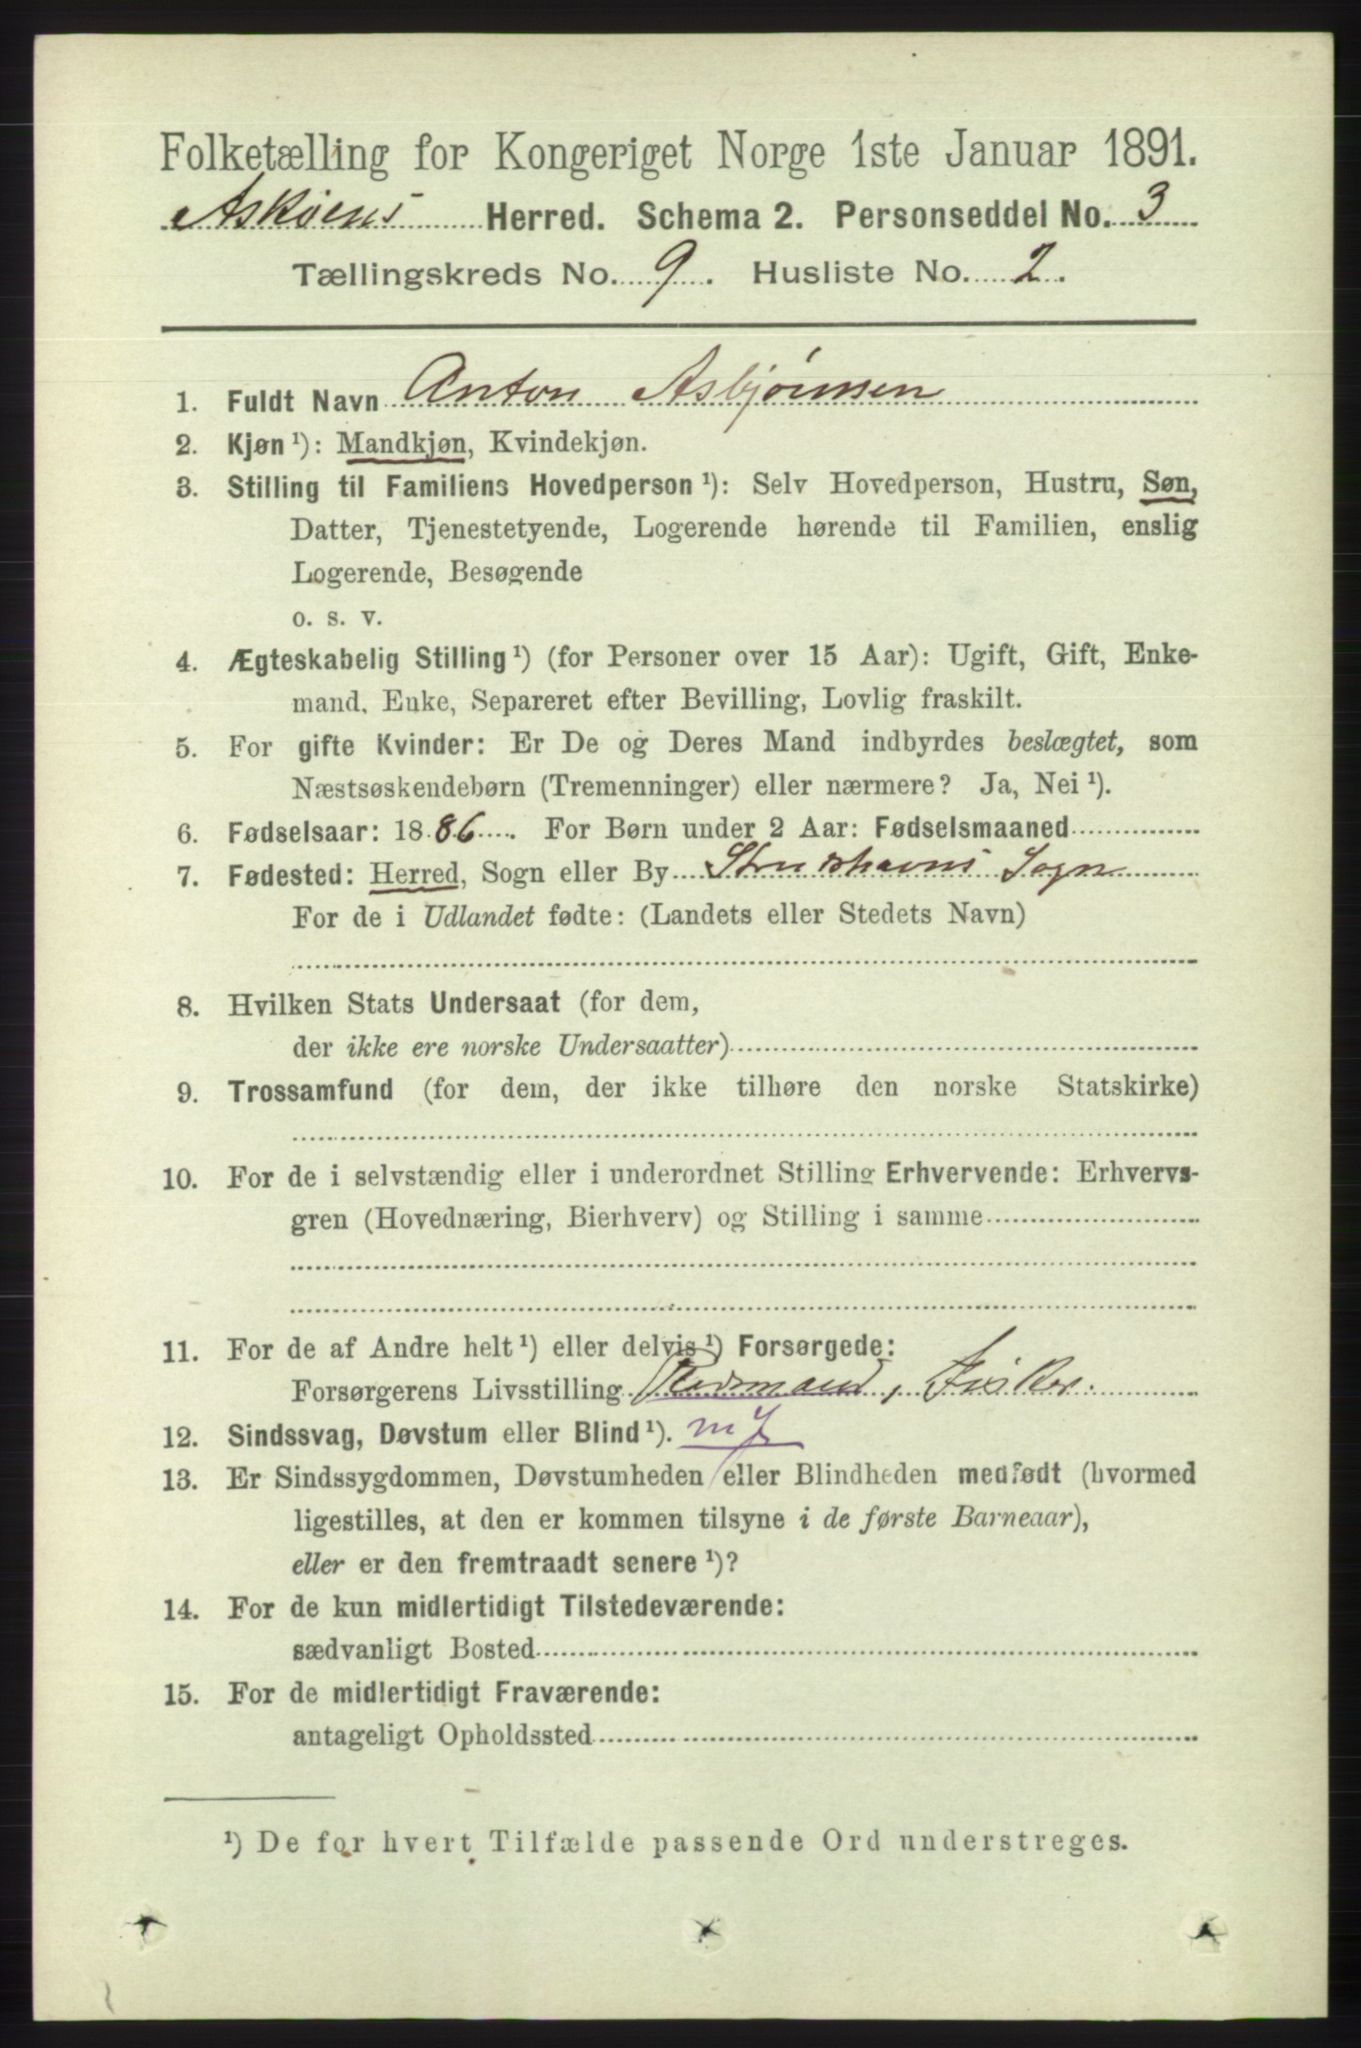 Folketælling for Kongeriget Norge 1ste Januar 1891.
Askøens Herred. Schema 2. Personseddel No. 3
Tællingskreds No. 9. Husliste No. 2.
1. Fuldt Navn Anton Asbjörnsen
2. Kjøn ¹): Mandkjøn, Kvindekjøn.
3. Stilling til Familiens Hovedperson ¹): Selv Hovedperson, Hustru, Søn,
Datter, Tjenestetyende, Logerende hørende til Familien, enslig
Logerende, Besøgende
o. s. v.
4. Ægteskabelig Stilling ¹) (for Personer over 15 Aar): Ugift, Gift, Enke-
mand, Enke, Separeret efter Bevilling, Lovlig fraskilt.
5. For gifte Kvinder: Er De og Deres Mand indbyrdes beslægtet, som
Næstsøskendebørn (Tremenninger) eller nærmere? Ja, Nei ¹).
6. Fødselsaar: 1886. For Børn under 2 Aar: Fødselsmaaned
7. Fødested: Herred, Sogn eller By Strudshavns Sogn
For de i Udlandet fødte: (Landets eller Stedets Navn)
8. Hvilken Stats Undersaat (for dem,
der ikke ere norske Undersaatter)
9. Trossamfund (for dem, der ikke tilhøre den norske Statskirke)
10. For de i selvstændig eller i underordnet Stilling Erhvervende: Erhvervs-
gren (Hovednæring, Bierhverv) og Stilling i samme
11. For de af Andre helt ¹) eller delvis ¹) Forsørgede:
Forsørgerens Livsstilling Pladsmand, Fisker.
12. Sindssvag, Døvstum eller Blind ¹).
13. Er Sindssygdommen, Døvstumheden eller Blindheden medfødt (hvormed
ligestilles, at den er kommen tilsyne i de første Barneaar),
eller er den fremtraadt senere ¹)?
14. For de kun midlertidigt Tilstedeværende:
sædvanligt Bosted
15. For de midlertidigt Fraværende:
antageligt Opholdssted
¹) De for hvert Tilfælde passende Ord understreges.